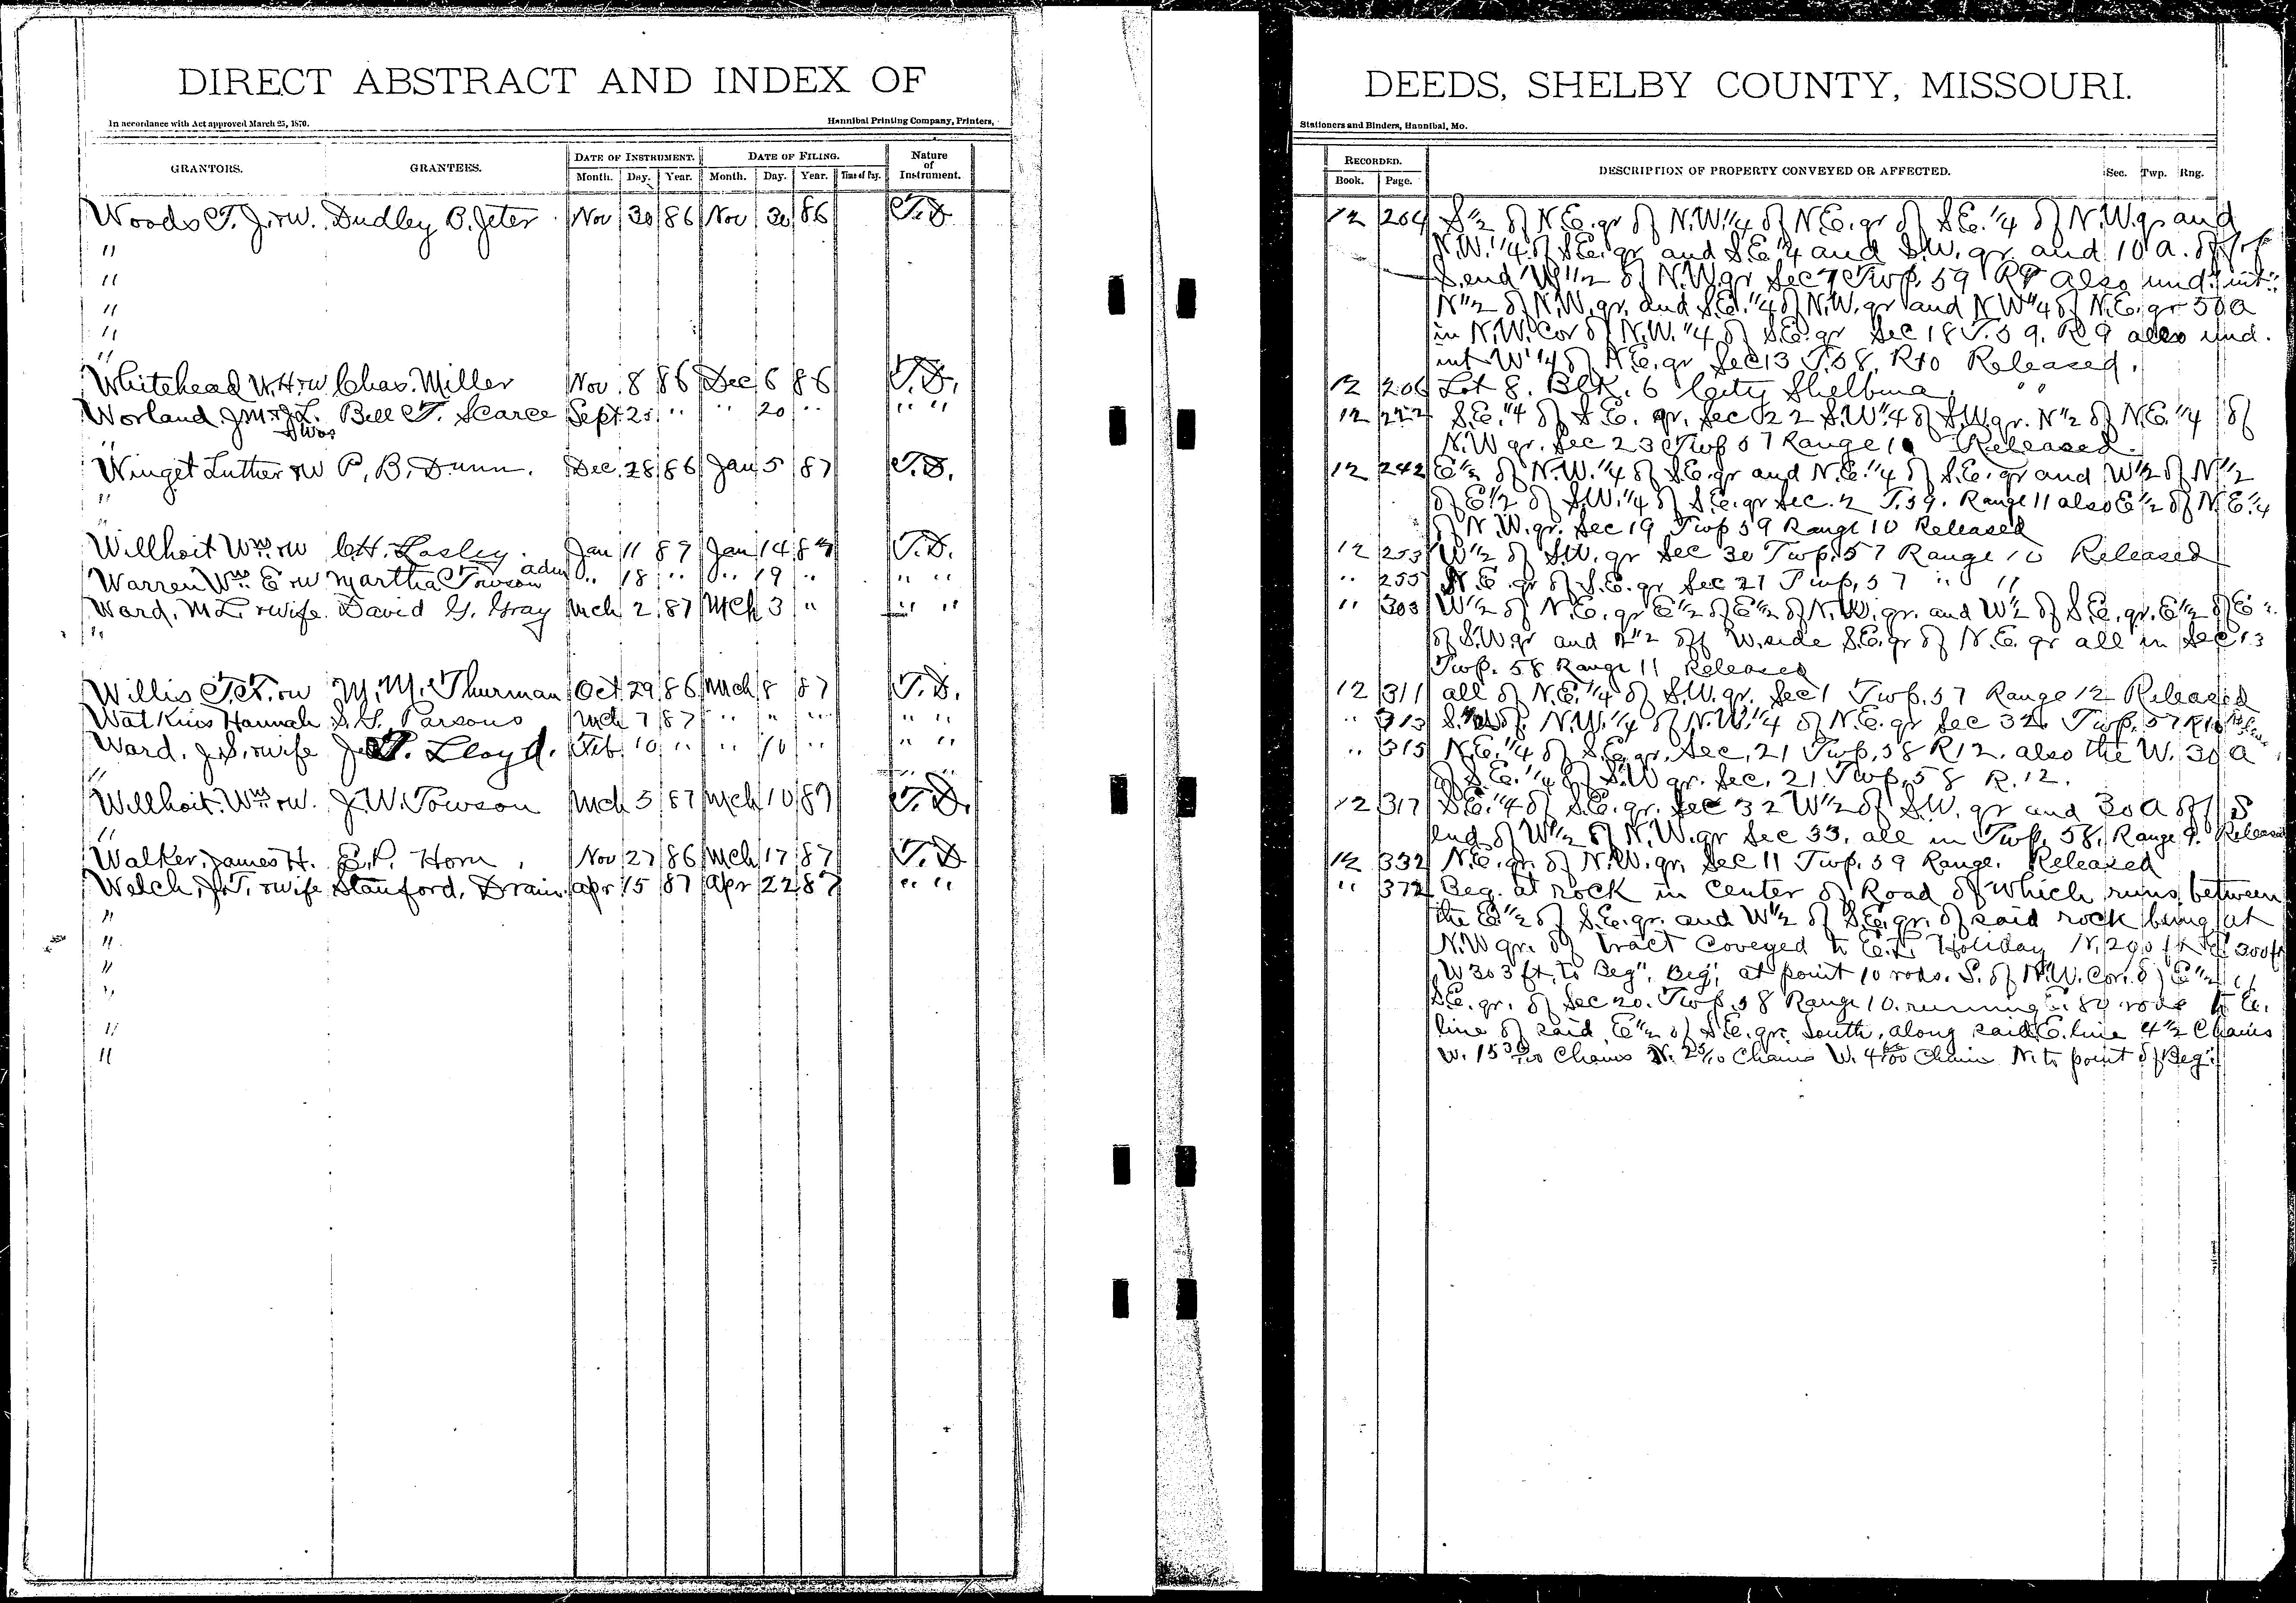 DIRECT ABSTRACT AND INDEX OF
In accordance with Act approved March 25, 1870.
Hannibal Printing Company, Printers,
GRANTORS. GRANTEES. DATE OF INSTRUMENT. DATE OF FILING. Nature of Instrument.
Month. Day. Year. Month. Day. Year. Time of Day.
Woods T. J. & W. Dudley B. Jeter Nov 30 86 Nov 30 86 T.D
"
"
"
"
"
Whitehead W.H & W Chas. Miller Nov 8 86 Dec 6 86 T.D.
Worland J.M & J.L. Bell T. Scarce Sept 25 " " 20 " " "
"
Winget Luther & W P. B. Dunn. Dec 28 86 Jan 5 87 T.D.
"
"
Willhoit Wm & W C.H. Lasley. Jan 11 87 Jan 14 87 T.D.
Warren Wm E & W Martha Towson adm " 18 " " 19 " " "
Ward, M L. & wife. David G. Gray Mch 2 87 Mch 3 " " "
"
Willis T.F. & W M. M. Thurman Oct 29 86 Mch 8 87 T.D.
Watkins Hannah S.G. Parsons Mch 7 87 " " " " "
Ward, J. S. & wife J. T. Lloyd. Feb 10 " " 10 " " "
"
Willhoit. Wm & W. J. W. Towson Mch 5 87 Mch 10 87 T.D.
"
Walker, James H. E. P. Horn, Nov 27 86 Mch 17 87 T.D
Welch, J.T. & wife Stanford, Drain Apr 15 87 Apr 22 87 " "
"
"
"
"
"
"
DEEDS, SHELBY COUNTY, MISSOURI.
Stationers and Binders, Hannibal, Mo.
RECORDED. DESCRIPTION OF PROPERTY CONVEYED OR AFFECTED. Sec. Twp. Rng.
Book. Page.
12 204 S 1/2 of N.E. qr of N.W. 1/4 of N.E. qr of S.E. 1/4 of N.W. qr and
N.W. 1/4 of S.E. qr and S.E. 1/4 and S.W. qr and 10 a. off of
S. end W 1/2 of N.W. qr Sec 7 Twp. 59 R9 also und. int.
N 1/2 of N.W. qr. and S.E. 1/4 of N.W. qr and N W 1/4 of N.E. qr 50 a
in N.W. Cor of N.W. 1/4 of S.E. qr Sec 18 T. 59. R 9 also und.
int W 1/4 of N.E. qr Sec 13 T.58. R10 Released.
12 206 Lot 8. Blk. 6 City Shelbina, " "
12 222 S.E. 1/4 of S.E. qr. Sec 22 S.W. 1/4 of S.W. qr. N 1/2 of N.E. 1/4 of
N.W qr. Sec 23 Twp 57 Range 10 Released.
12 242 E 1/2 of N.W. 1/4 of S.E. qr and N.E. 1/4 of S.E. qr and W 1/2 of N 1/2
of E 1/2 of S.W. 1/4 of S.E. qr Sec. 2 T.59. Range 11 also E 1/2 of N.E. 1/4
of N.W. qr. Sec 19 Twp 59 Range 10 Released
12 253 W 1/2 of S.W. qr Sec 30 Twp. 57 Range 10 Released
" 255 N.E. qr of S.E. qr Sec 27 Twp. 57 " "
" 303 W 1/2 of N.E. qr E 1/2 of E 1/2 of N.W. qr. and W 1/2 of S.E. qr. E 1/2 of E "
of S.W. qr and off W. side S.E. qr of N.E. qr all in Sec 13
Twp. 58 Range 11 Released
12 311 all of N.E. 1/4 of S.W. qr. Sec 1 Twp. 57 Range 12 Released
" 313 N.W. 1/4 of N.W. 1/4 of N.E. qr Sec 32 Twp. 57 R10
" 315 N.E. 1/4 of S.E. qr. Sec, 21 Twp. 58 R12. also the W. 30 a
of S.E. 1/4 of S.W qr. Sec. 21 Twp. 58 R. 12.
12 317 S.E. 1/4 of S.E. qr. Sec 32 W 1/2 of S.W. qr and 30 a off S
end of W 1/2 of N.W. qr Sec 33. all in Twp. 58. Range 9. Released
12 332 N.E. qr. of N.W. qr. Sec 11 Twp. 59 Range. Released
" 372 Beg. at rock in center of Road of which runs between
the E 1/2 of S.E. qr. and W 1/2 of S.E. qr. of said rock being at
N.W qr. of tract coveyed to E.L. Holiday N. 200 ft E 300 ft
W 303 ft. to Beg". Beg. at point 10 rods. S. of N.W. Cor. of E 1/2 of
S.E. qr. of Sec 20. Twp. 58 Range 10. running E. 80 rods to E.
line of said E 1/2 of S.E. qr. South, along said E. line 4 1/2 Chains
W. 15 Chains N. Chains W. Chain N. to point of Beg"